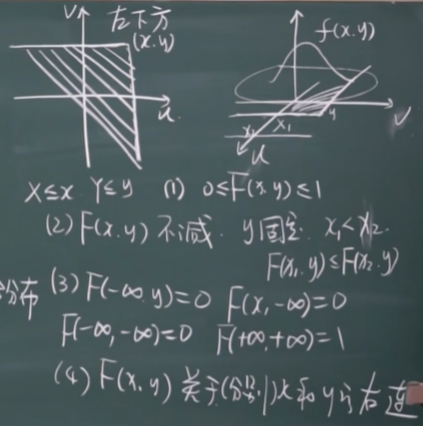 左下方
v (x.y)
u
f(x.y)
x₂ x₁ y v
u
X≤x Y≤y (1) 0≤F(x.y)≤1
(2) F(x.y) 不减. y固定 x₁<x₂.
F(x₁.y)≤F(x₂.y)
分布 (3) F(-∞.y)=0 F(x,-∞)=0
F(-∞,-∞)=0 F(+∞,+∞)=1
(4) F(x,y) 关于(分别)x和y 右连